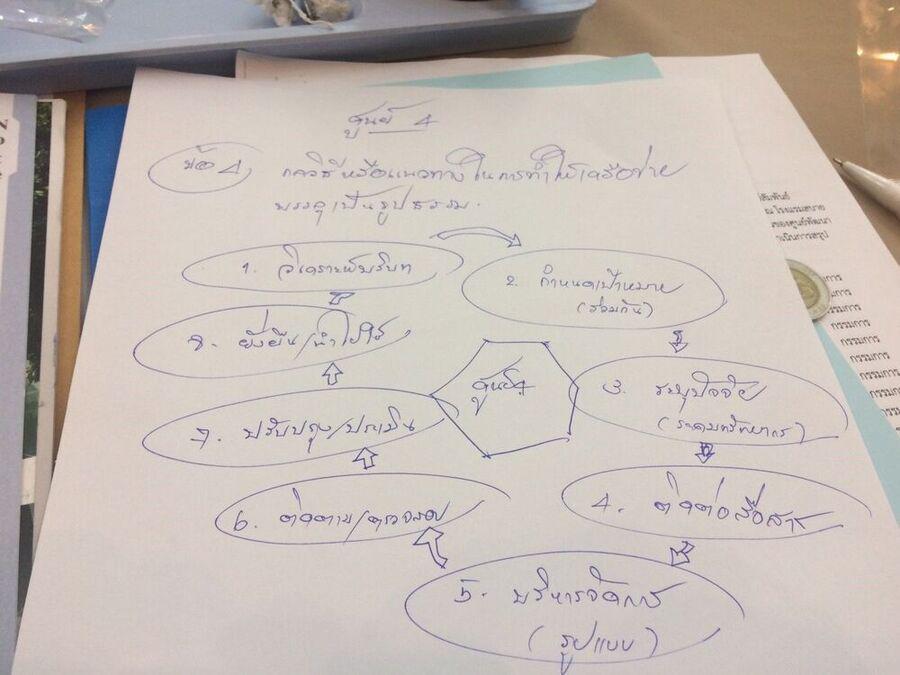 ศูนย์ 4
ข้อ 4 กลวิธีหรือแนวทางในการทำให้เครือข่าย
บรรลุเป็นรูปธรรม.
1. วิเคราะห์บริบท
2. กำหนดเป้าหมาย
(ร่วมกัน)
3. ระบุปัจจัย
(ระดมทรัพยากร)
4. ติดต่อสื่อสาร
5. บริหารจัดการ
(รูปแบบ)
6. ติดตาม/ตรวจสอบ
7. ปรับปรุง/ประเมิน
8. ยั่งยืน/นำไปใช้
ศูนย์4
สัมพันธ์
ณ โรงแรมสบาย
ของศูนย์พัฒนา
เนินการสรุป
กรรมการ
กรรมการ
กรรมการ
กรรมการ
กรรมการ
กรรมการ